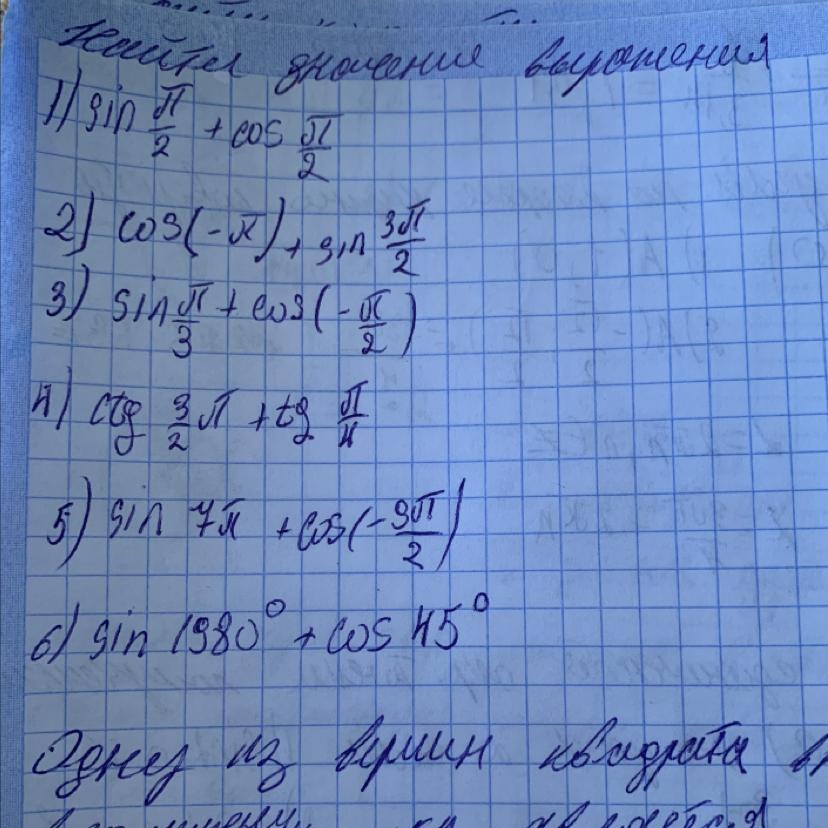 Найти значение выражения
1) sin π/2 + cos π/2
2) cos(-π) + sin 3π/2
3) sin π/3 + cos(-π/2)
4) ctg 3/2 π + tg π/4
5) sin 7π + cos(-9π/2)
6) sin 1980° + cos 45°
Одну из вершин квадрата